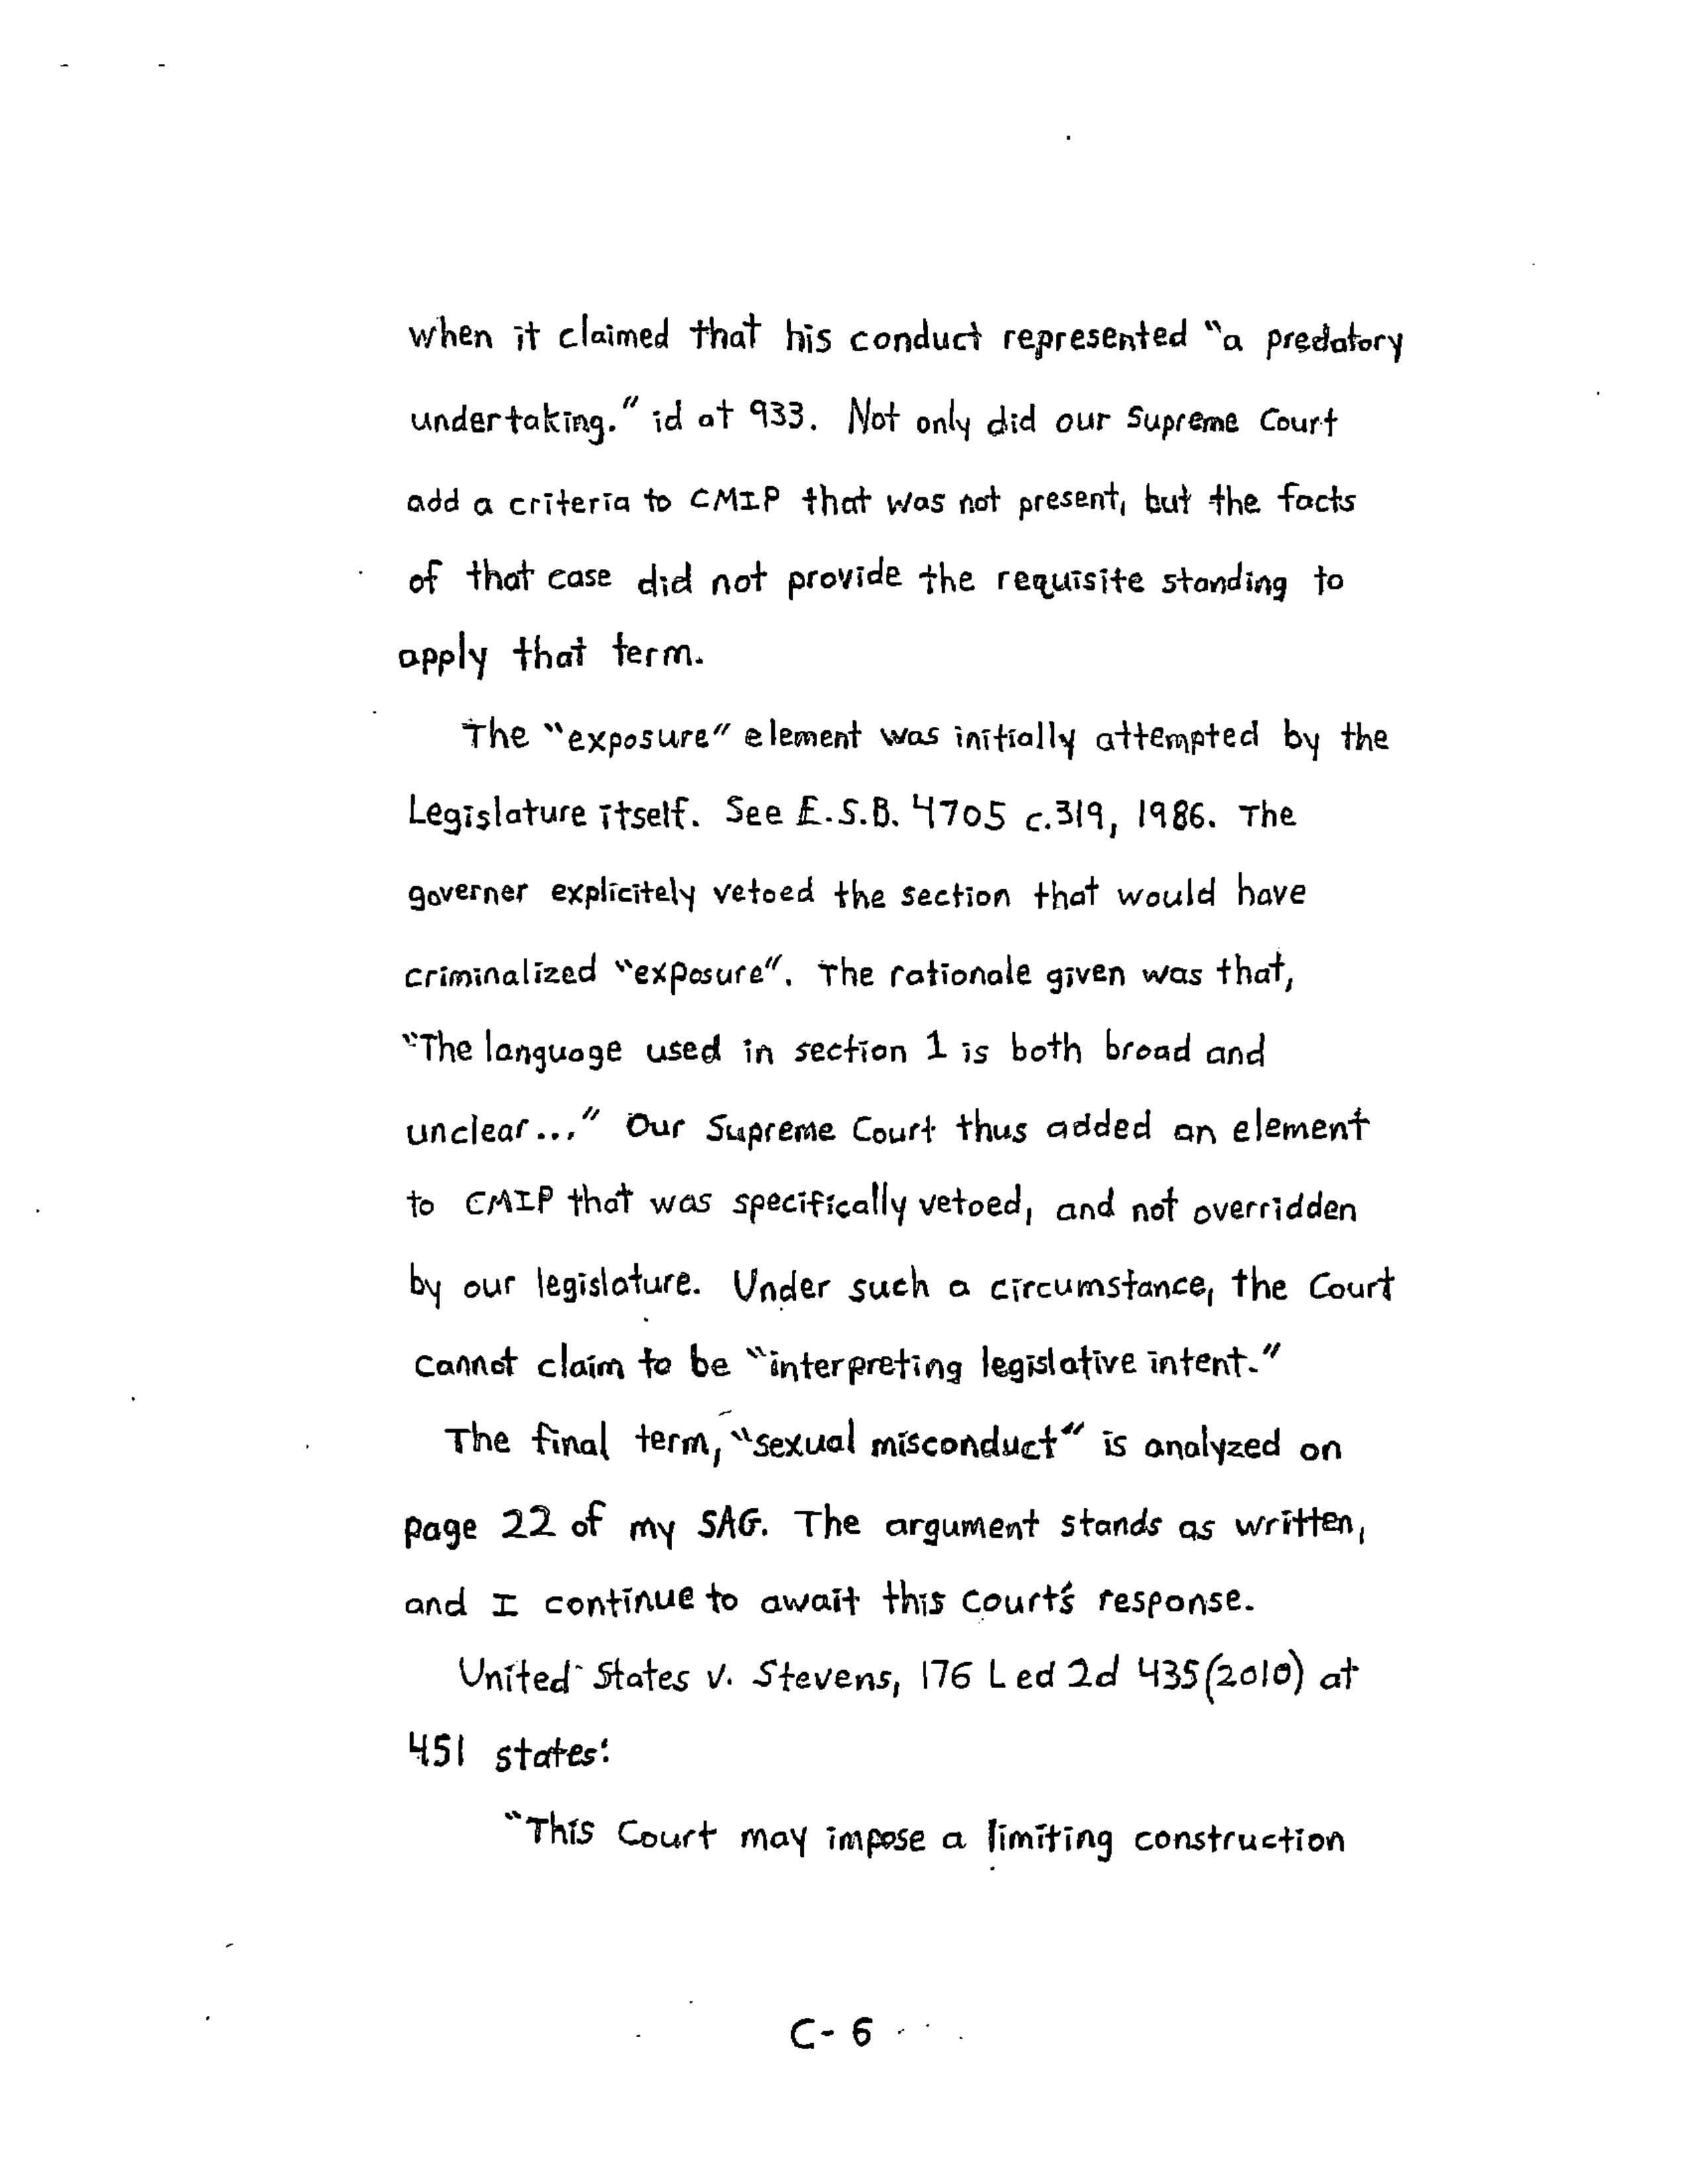 when it claimed that his conduct represented "a predatory
undertaking." id at 933. Not only did our Supreme Court
add a criteria to CMIP that was not present, but the facts
of that case did not provide the requisite standing to
apply that term.
The "exposure" element was initially attempted by the
Legislature itself. See E.S.B. 4705 c.319, 1986. The
governer explicitely vetoed the section that would have
criminalized "exposure". The rationale given was that,
"The language used in section 1 is both broad and
unclear..." Our Supreme Court thus added an element
to CMIP that was specifically vetoed, and not overridden
by our legislature. Under such a circumstance, the Court
cannot claim to be "interpreting legislative intent."
The final term, "sexual misconduct" is analyzed on
page 22 of my SAG. The argument stands as written,
and I continue to await this court's response.
United States v. Stevens, 176 L ed 2d 435 (2010) at
451 states:
"This Court may impose a limiting construction
C-6